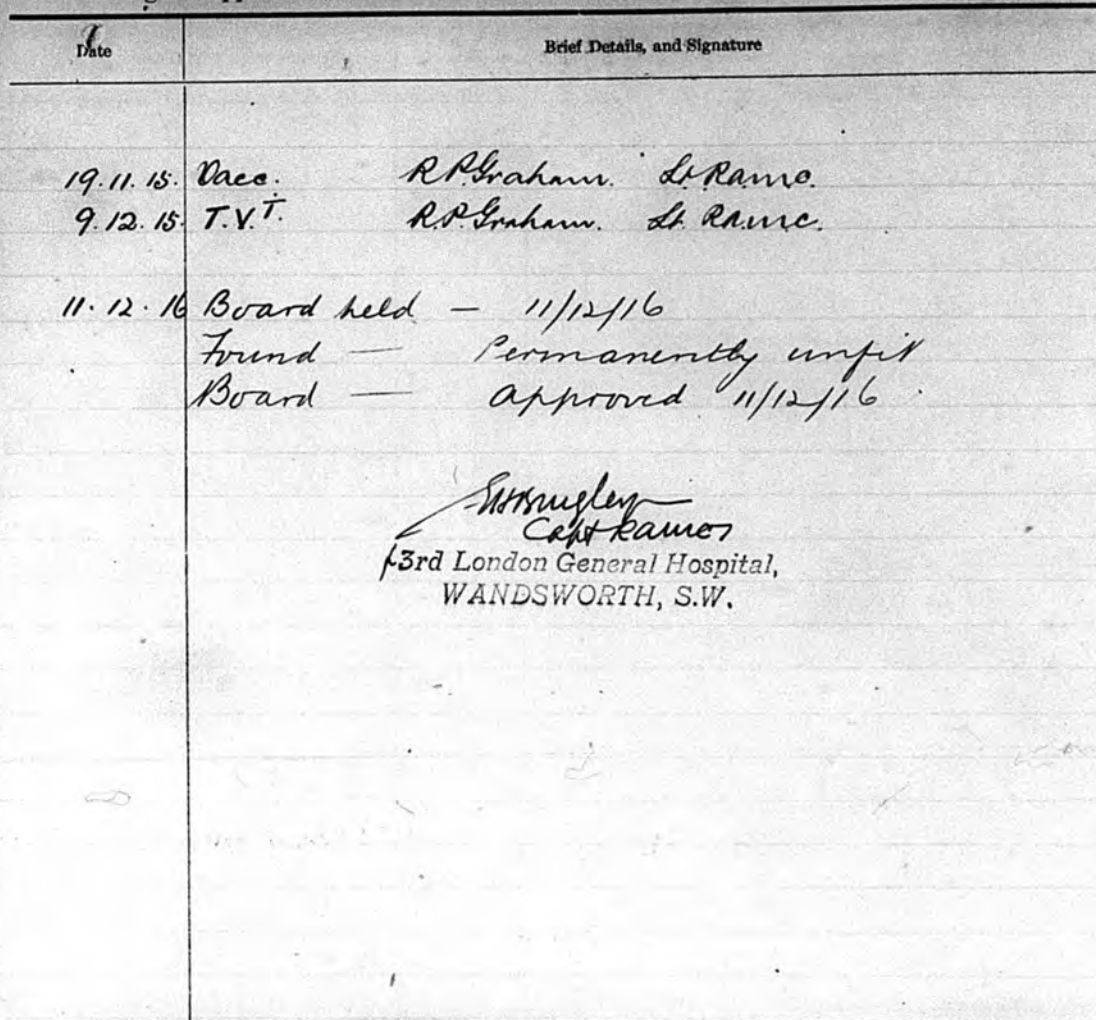 Date Brief Details, and Signature
19.11.15. Vacc. R.P. Graham. Lt. RAMC.
9.12.15. T.V.T. R.P. Graham. Lt. RAMC.
11.12.16 Board held — 11/12/16
Found — Permanently unfit
Board — approved 11/12/16.
Capt RAMC
3rd London General Hospital,
WANDSWORTH, S.W.